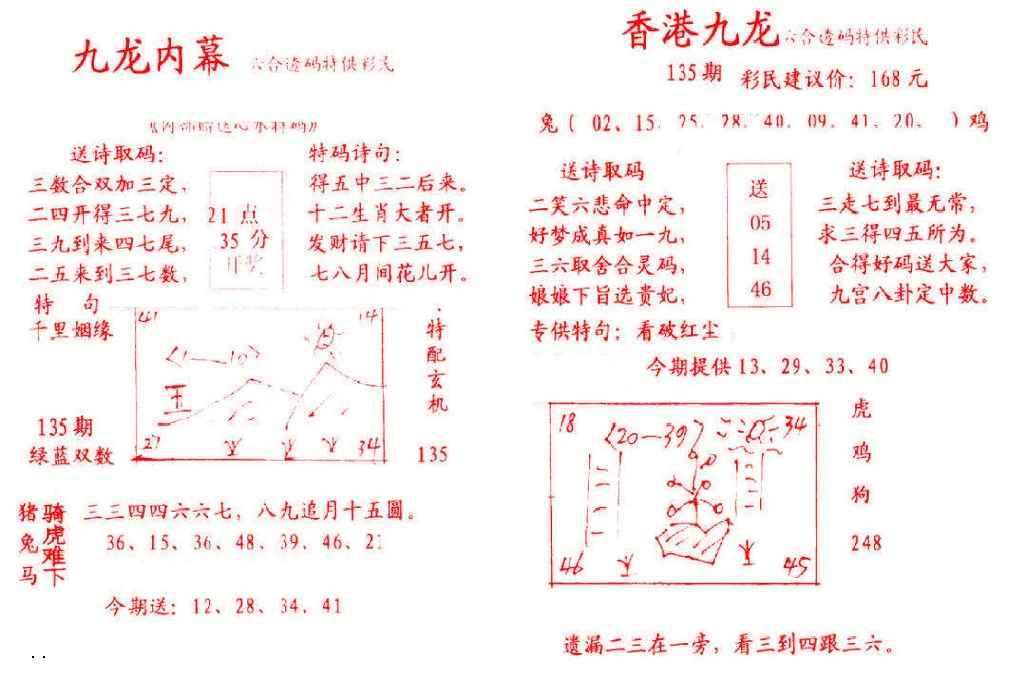 九龙内幕 六合透码特供彩民
送诗取码：
三数合双加三定，
二四开得三七九，
三九到来四七尾，
二五来到三七数，
21 点
35 分
开奖
特码诗句：
得五中三二后来。
十二生肖大者开。
发财请下三五七，
七八月间花儿开。
特 句
千里姻缘
135期
绿蓝双数
41
14
〈1—10〉
王
27
34
特配玄机
135
猪兔马
骑虎难下
三三四四六六七，八九追月十五圆。
36、15、36、48、39、46、21
今期送：12、28、34、41
香港九龙 六合透码特供彩民
135期 彩民建议价：168元
兔（ 02、15、25、28、40、09、41、20、 ）鸡
送诗取码
二笑六悲命中定，
好梦成真如一九，
三六取舍合灵码，
娘娘下旨选贵妃，
送
05
14
46
送诗取码：
三走七到最无常，
求三得四五所为。
合得好码送大家，
九宫八卦定中数。
专供特句：看破红尘
今期提供13、29、33、40
18
〈20—39〉
34
46
45
虎
鸡
狗
248
遗漏二三在一旁，看三到四跟三六。